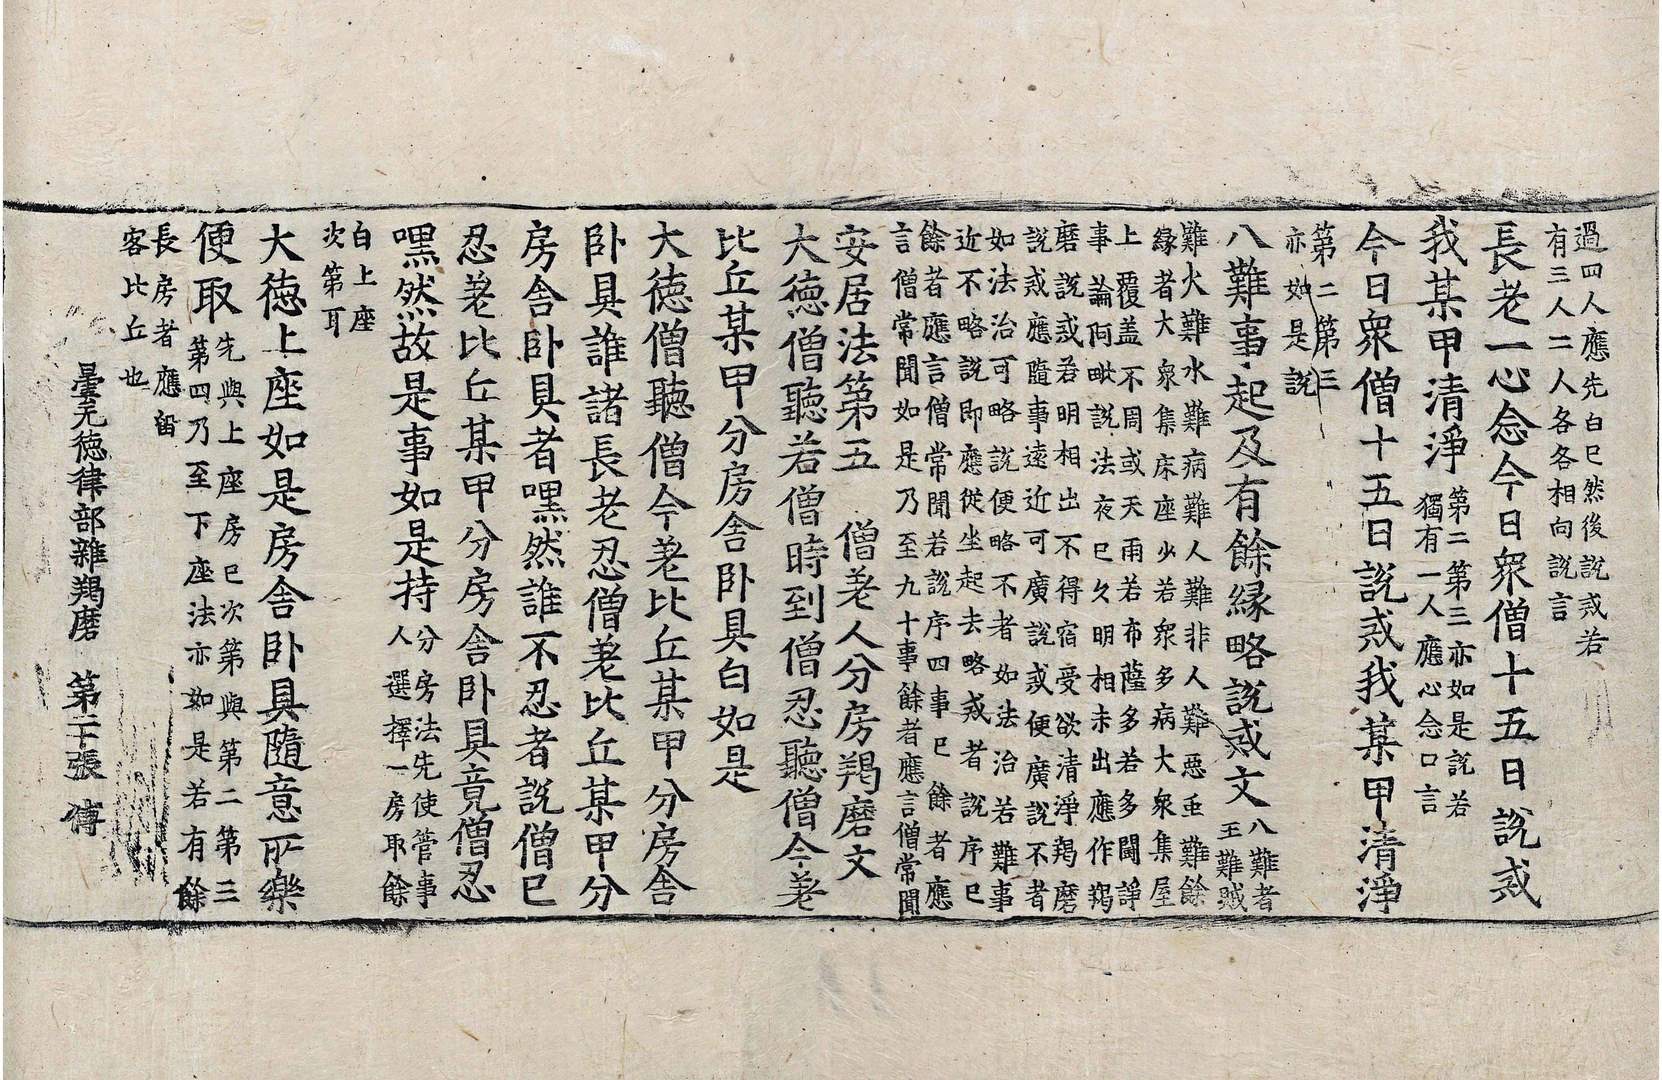 過四人應先白已然後說戒若
有三人二人各各相向說言
長老一心念今日衆僧十五日說戒
我某甲清淨第二第三亦如是說若
獨有一人應心念口言
今日衆僧十五日說戒我某甲清淨
第二第三
亦如是說
八難事起及有餘緣略說戒文八難者
王難賊
難火難水難病難人難非人難惡虫難餘
緣者大衆集床座少若衆多病大衆集屋
上覆蓋不周或天雨若布薩多若多鬪諍
事論阿毗說法夜已久明相未出應作羯
磨說戒若明相出不得宿受欲清淨羯磨
說戒應隨事遠近可廣說戒便廣說不者
如法治可略說便略不者如法治若難事
近不略說即應從坐起去略戒者說序已
餘者應言僧常聞若說序四事已餘者應
言僧常聞如是乃至九十事餘者應言僧常聞
安居法第五 僧差人分房羯磨文
大德僧聽若僧時到僧忍聽僧今差
比丘某甲分房舍卧具白如是
大德僧聽僧今差比丘某甲分房舍
卧具誰諸長老忍僧差比丘某甲分
房舍卧具者嘿然誰不忍者說僧已
忍差比丘某甲分房舍卧具竟僧忍
嘿然故是事如是持分房法先使管事
人選擇一房取餘
白上座
次第耳
大德上座如是房舍卧具隨意所樂
便取先與上座房已次第與第二第三
第四乃至下座法亦如是若有餘
長房者應留
客比丘也
曇无德律部雜羯磨 第二十張 傅